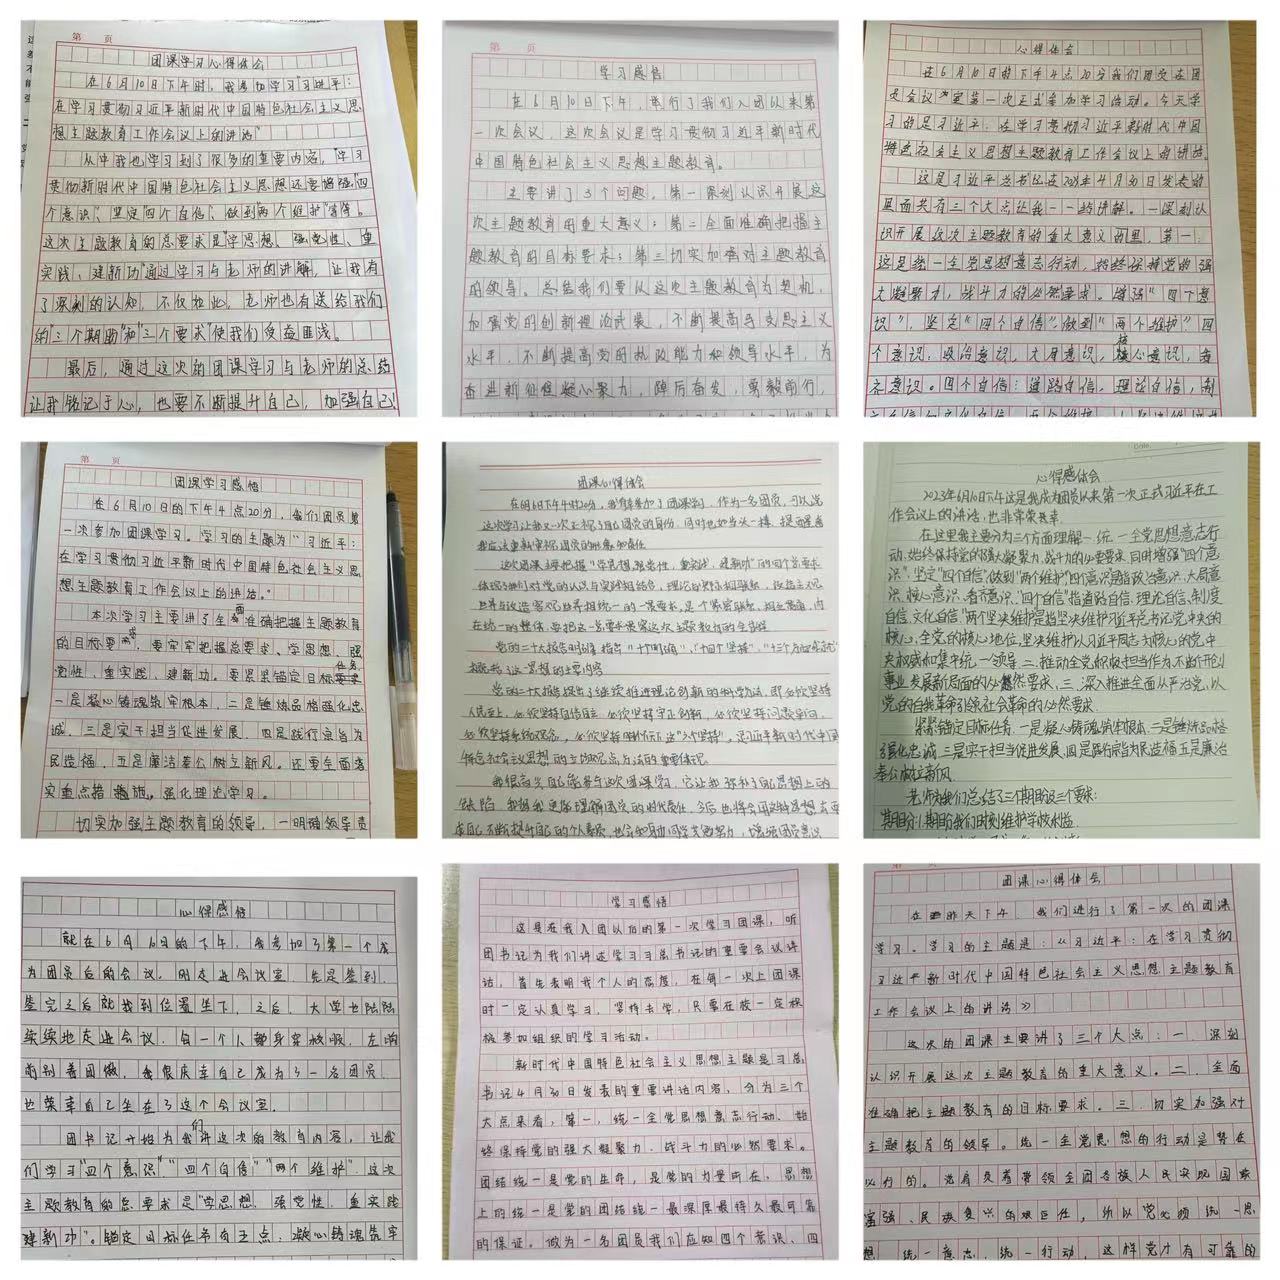 第 页
团课学习心得体会
在6月10日下午时，我参加学习"习近平：
在学习贯彻习近平新时代中国特色社会主义思
想主题教育工作会议上的讲话"
从中我也学习到了很多的重要内容，"学习
贯彻新时代中国特色社会主义思想还要增强"四
个意识"、坚定"四个自信"、做到"两个维护"等等。
这次主题教育的总要求是"学思想、强党性、重
实践、建新功"通过学习与老师的讲解，让我有
了深刻的认知，不仅如此，老师也有送给我们
的"三个期盼"和"三个要求"使我们受益匪浅。
最后，通过这次的团课学习与老师的总结
让我铭记于心，也要不断提升自己，加强自己！
第 页
学习感悟
在6月10日下午，举行了我们入团以来第
一次会议，这次会议是学习贯彻习近平新时代
中国特色社会主义思想主题教育。
主要讲了3个问题，第一深刻认识开展这
次主题教育的重大意义；第二全面准确把握主
题教育的目标要求；第三切实加强对主题教育
的领导。总结我们要从这次主题教育为契机，
加强党的创新理论武装，不断提高马克思主义
水平，不断提高党的执政能力和领导水平，为
奋进新征程凝心聚力，踔厉奋发，勇毅前行，
心得体会
在6月10日的下午4点20分我们团员在团
员会议室第一次正式参加学习活动。今天学
习的是习近平：在学习贯彻习近平新时代中国
特色社会主义思想主题教育工作会议上的讲话。
这是习近平总书记在2023年4月30日发表的
里面共有三个大点让我一一的讲解。一深刻认
识开展这次主题教育的重大意义而里，第一：
这是统一全党思想意志行动，始终保持党的强
大凝聚力，战斗力的必然要求。增强"四个意
识"，坚定"四个自信"，做到"两个维护"四
个意识：政治意识，大局意识，核心意识，看
齐意识。四个自信：道路自信，理论自信，制
第 页
团课学习感悟
在6月10日的下午4点20分，我们团员第
一次参加团课学习。学习的主题为"习近平：
在学习贯彻习近平新时代中国特色社会主义思
想主题教育工作会议上的讲话。"
本次学习主要讲了全面准确把握主题教育
的目标要求，要牢牢把握总要求、学思想、强
党性，重实践，建新功。要紧紧锚定目标任务
一是凝心铸魂筑牢根本，二是锤炼品格强化忠
诚，三是实干担当促进发展，四是践行宗旨为
民造福，五是廉洁奉公树立新风。还要全面落
实重点措施。强化理论学习。
切实加强主题教育的领导，一明确领导责
团课心得体会
在6月10日下午4时20分，我有幸参加了团课学习，作为一名团员，可以说
这次学习让我又一次正视了自己团员的身份，同时也如当头一棒，提醒着
我应该重新审视团员的形象和责任
这次团课主要把握"学思想、强党性，重实践，建新功"的四个总要求
体现了我们对党的认识与实践相结合，理论与实际相联系，改造主观
世界与改造客观世界相统一的一贯要求，是个紧密联系，相互贯通，内
在统一的整体，要把这一总要求贯穿这次主题教育的全过程
党的二十大报告明确指出"十个明确"，"十四个坚持"，"十三个方面成就"
概括了这一思想的主要内容
党的二十大报告提出了继续推进理论创新的科学方法，即必须坚持
人民至上，必须坚持自信自立，必须坚持守正创新，必须坚持问题导向，
必须坚持系统观念，必须坚持胸怀天下这"六个坚持"。是习近平新时代中国
特色社会主义思想的立场观点方法的重要体现
我很高兴自己能参与这次团课学习，它让我弥补了自己思想上的
缺陷
心得感体会
2023年6月10日下午这是我成为团员以来第一次正式习近平在工
作会议上的讲话，也非常荣幸
在这里我主要分为三个方面理解一.统一全党思想意志行
动.始终保持党的强大凝聚力，战斗力的必要要求.同时增强"四个意
识"，坚定"四个自信"，做到"两个维护"，四个意识是指政治意识，大局意
识，核心意识，看齐意识，"四个自信"指道路自信，理论自信，制度
自信，文化自信，"两个坚决维护"是指坚决维护习近平总书记党中央的
核心，全党的核心地位，坚决维护以习近平同志为核心的党中
央权威和集中统一领导，二.推动全党积极担当作为不断开创
事业发展新局面的必然要求，三.深入推进全面从严治党，以
党的自我革命引领社会革命的必然要求.
紧紧锚定目标任务，一是凝心铸魂筑牢根本，二是锤炼品格
强化忠诚，三是实干担当促进发展，四是践行宗旨为民造福五是廉洁
奉公树立新风
老师为我们总结了三个期盼及三个要求：
期盼：1.期盼我们时刻维护学校利益.
心得感悟
就在6月10日的下午，我参加了第一个成
为团员后的会议，刚走进会议室，先是签到，
签完之后就找到位置坐下，之后，大学也陆陆
续续地走进会议，每一个人都身穿校服，左胸
前别着团徽，我很庆幸自己成为了一名团员，
也荣幸自己坐在了这个会议室.
团书记开始为我们讲这次的教育内容，让我
们学习"四个意识""四个自信""两个维护".这次
主题教育的总要求是"学思想，强党性，重实践
建新功"。锚定目标任务有五点：凝心铸魂筑牢
学习感悟
这是在我入团以后的第一次学习团课，听
团书记为我们讲述学习习总书记的重要会议讲
话，首先表明我个人的态度，在每一次上团课
时一定认真学习，坚持去学，只要在校一定积
极参加组织的学习活动。
新时代中国特色社会主义思想主题是习总
书记4月30日发表的重要讲话内容，分为三个
大点来看，第一，统一全党思想意志行动、始
终保持党的强大凝聚力、战斗力的必然要求。
团结统一是党的生命，是党的力量所在，思想
上的统一是党的团结统一最深厚最持久最可靠
的保证。做为一名团员我们应知四个意识、四
第 页
团课心得体会
在昨天下午，我们进行了第一次的团课
学习。学习的主题是：《习近平：在学习贯彻
习近平新时代中国特色社会主义思想主题教育
工作会议上的讲话》
这次的团课主要讲了三个大点：一、深刻
认识开展这次主题教育的重大意义。二、全面
准确把主题教育的目标要求。三、切实加强对
主题教育的领导。统一全党思想的行动是势在
必行的。党肩负着带领全国各族人民实现国家
富强、民族复兴的艰巨任，所以党必须统一思
想，统一意志，统一行动，这样党才有可靠的